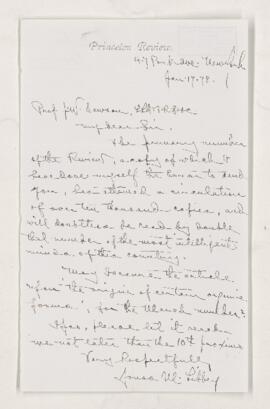 Princeton Review.
47 Park Ave. New York
Jan. 17. 78.
Prof J.W. Dawson,
My dear Sir.
The January number
of the Review, a copy of which I
have done myself the honor to send
you, has attained a circulation
of over ten thousand copies, and
will doubtless be read by double
that number of the most intelligent
minds of this country.
May I secure the article
upon the origin of certain organic
forms, for the March number?
If so, please let it reach
me not later than the 10th proximo
Very Respectfully,
Jonas M. Libbey